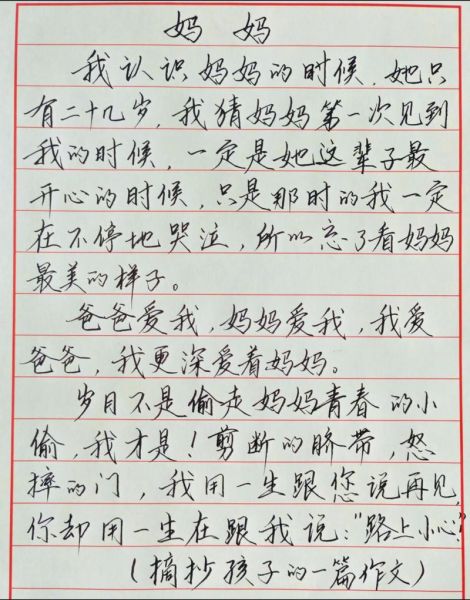 妈妈
我认识妈妈的时候,她只
有二十几岁,我猜妈妈第一次见到
我的时候,一定是她这辈子最
开心的时候,只是那时的我一定
在不停地哭泣,所以忘了看妈妈
最美的样子。
爸爸爱我,妈妈爱我,我爱
爸爸,我更深爱着妈妈。
岁月不是偷走妈妈青春的小
偷,我才是!剪断的脐带,怒
摔的门,我用一生跟您说再见,
你却用一生在跟我说:"路上小心!"
(摘抄孩子的一篇作文)